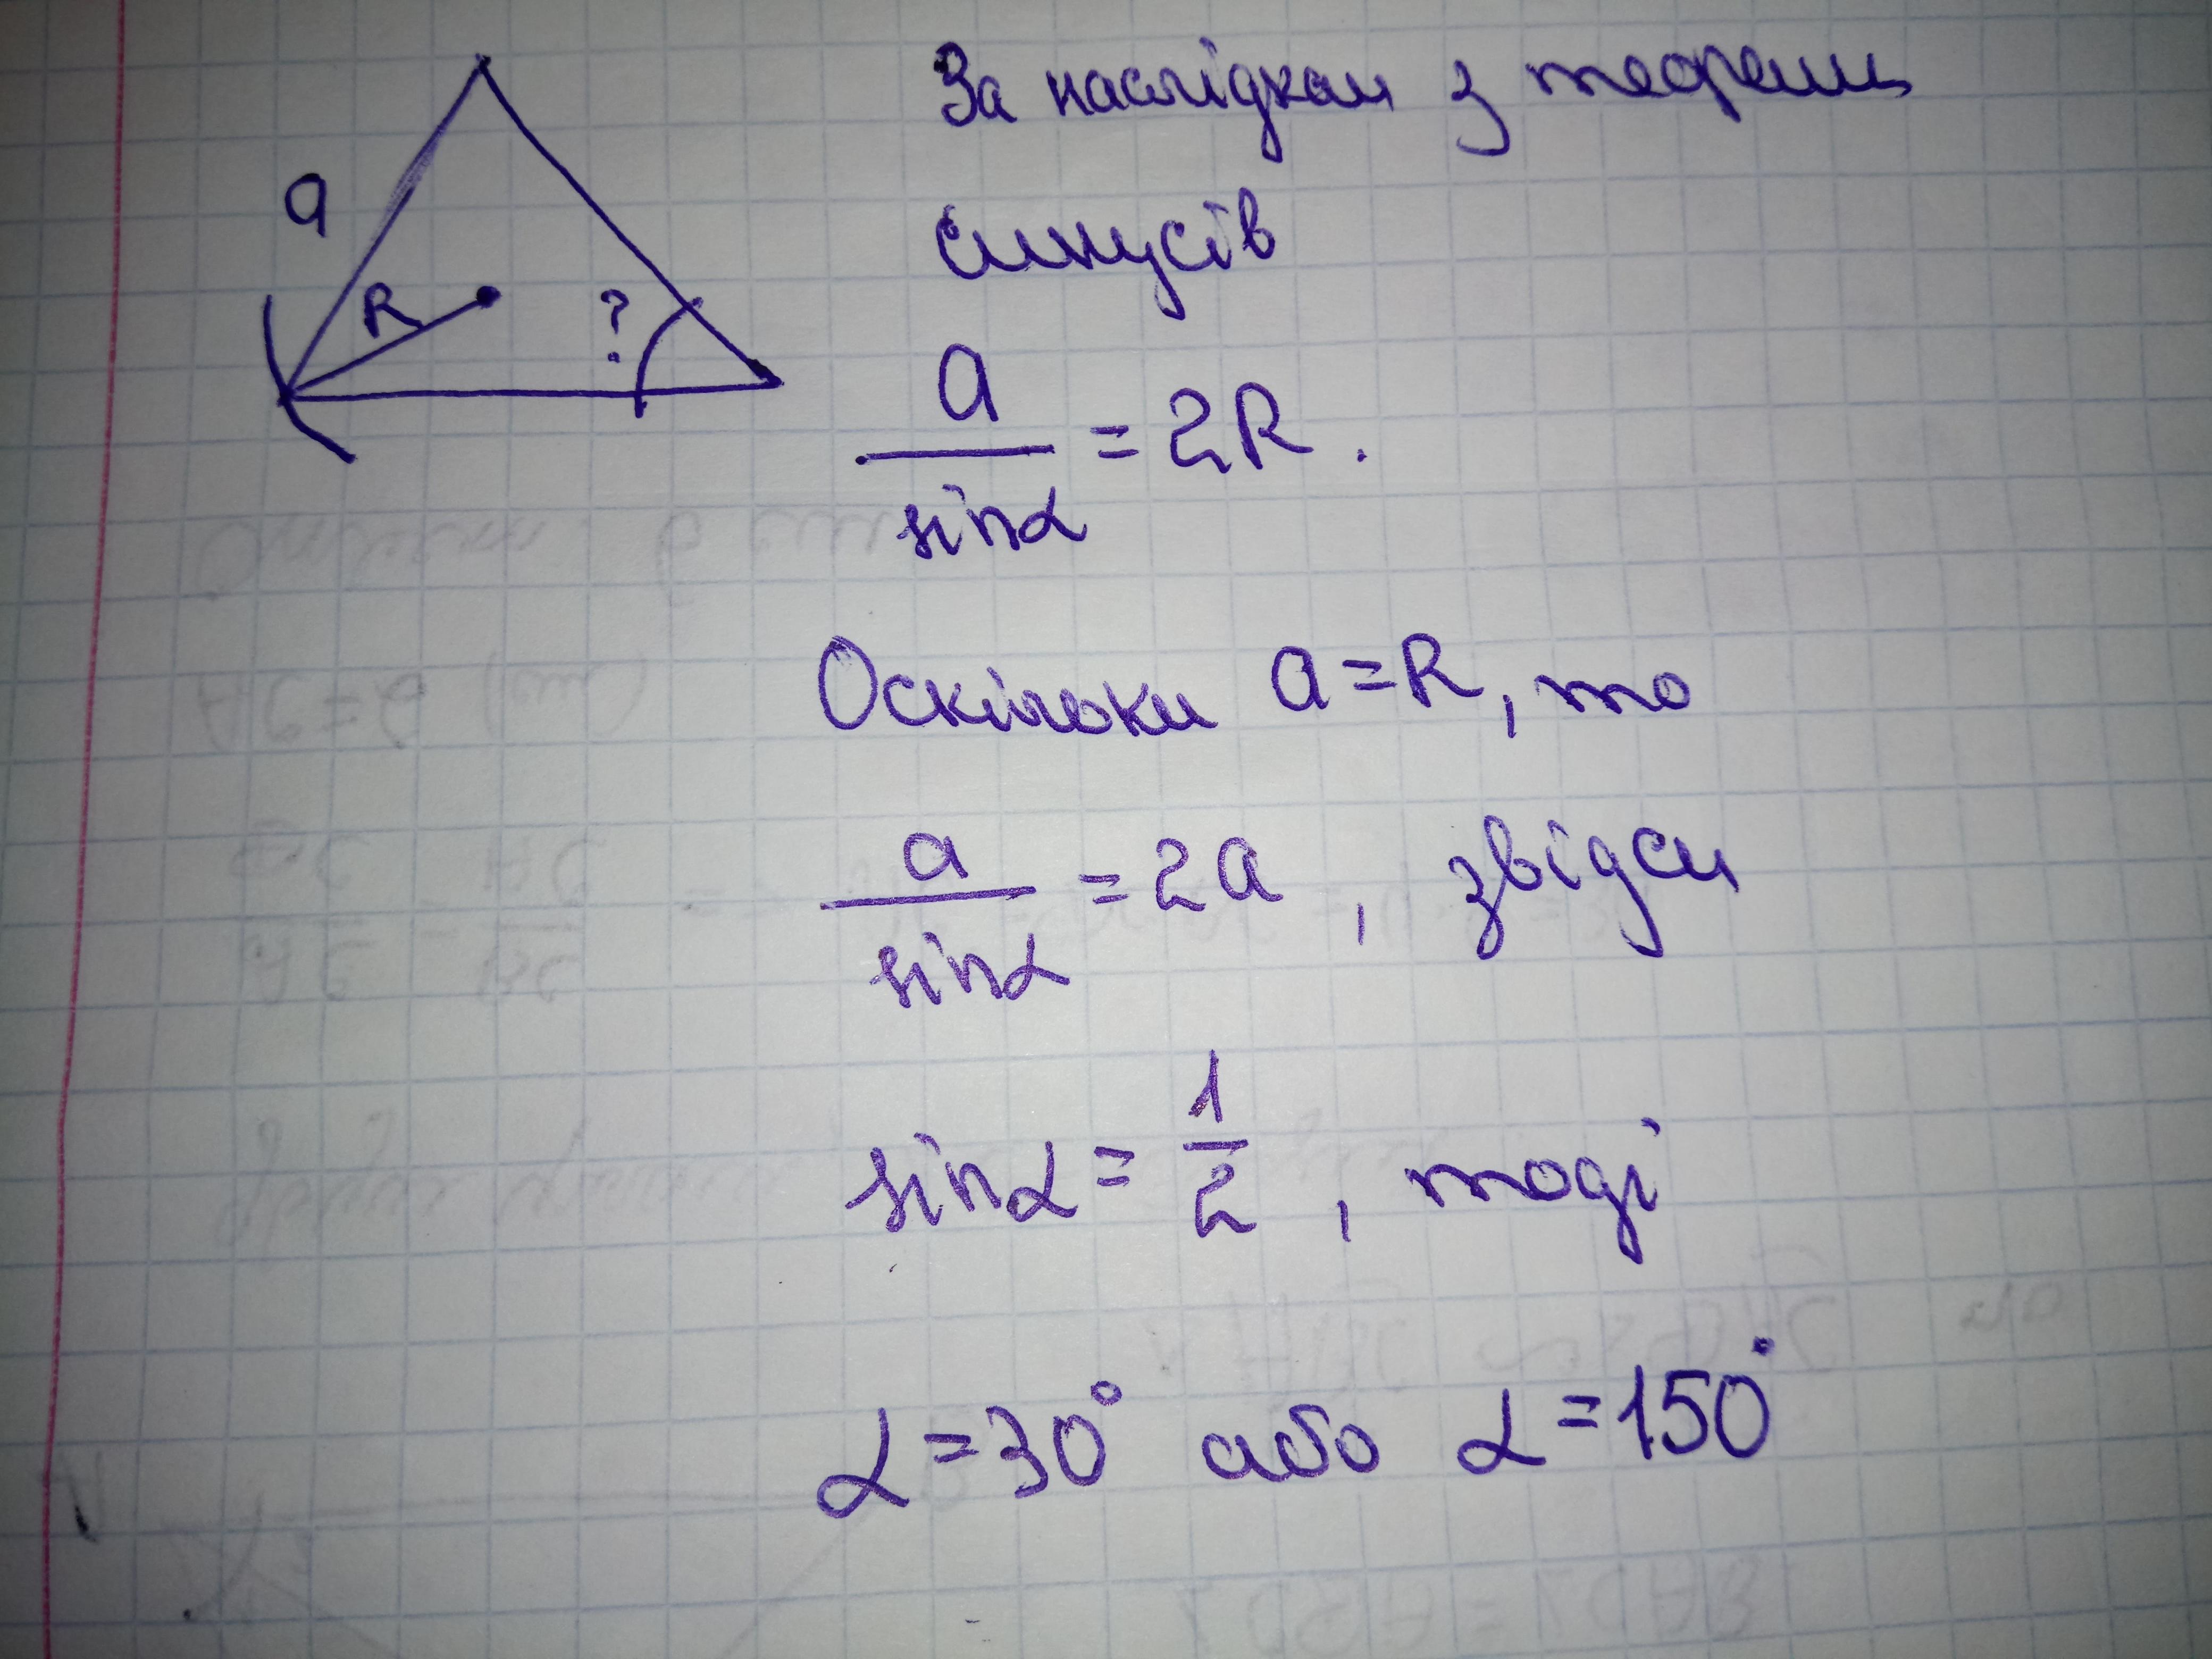 a
R
?
За наслідком з теореми
синусів
a/sinα = 2R.
Оскільки a=R, то
a/sinα = 2a, звідси
sinα = 1/2, тоді
α=30° або α=150°